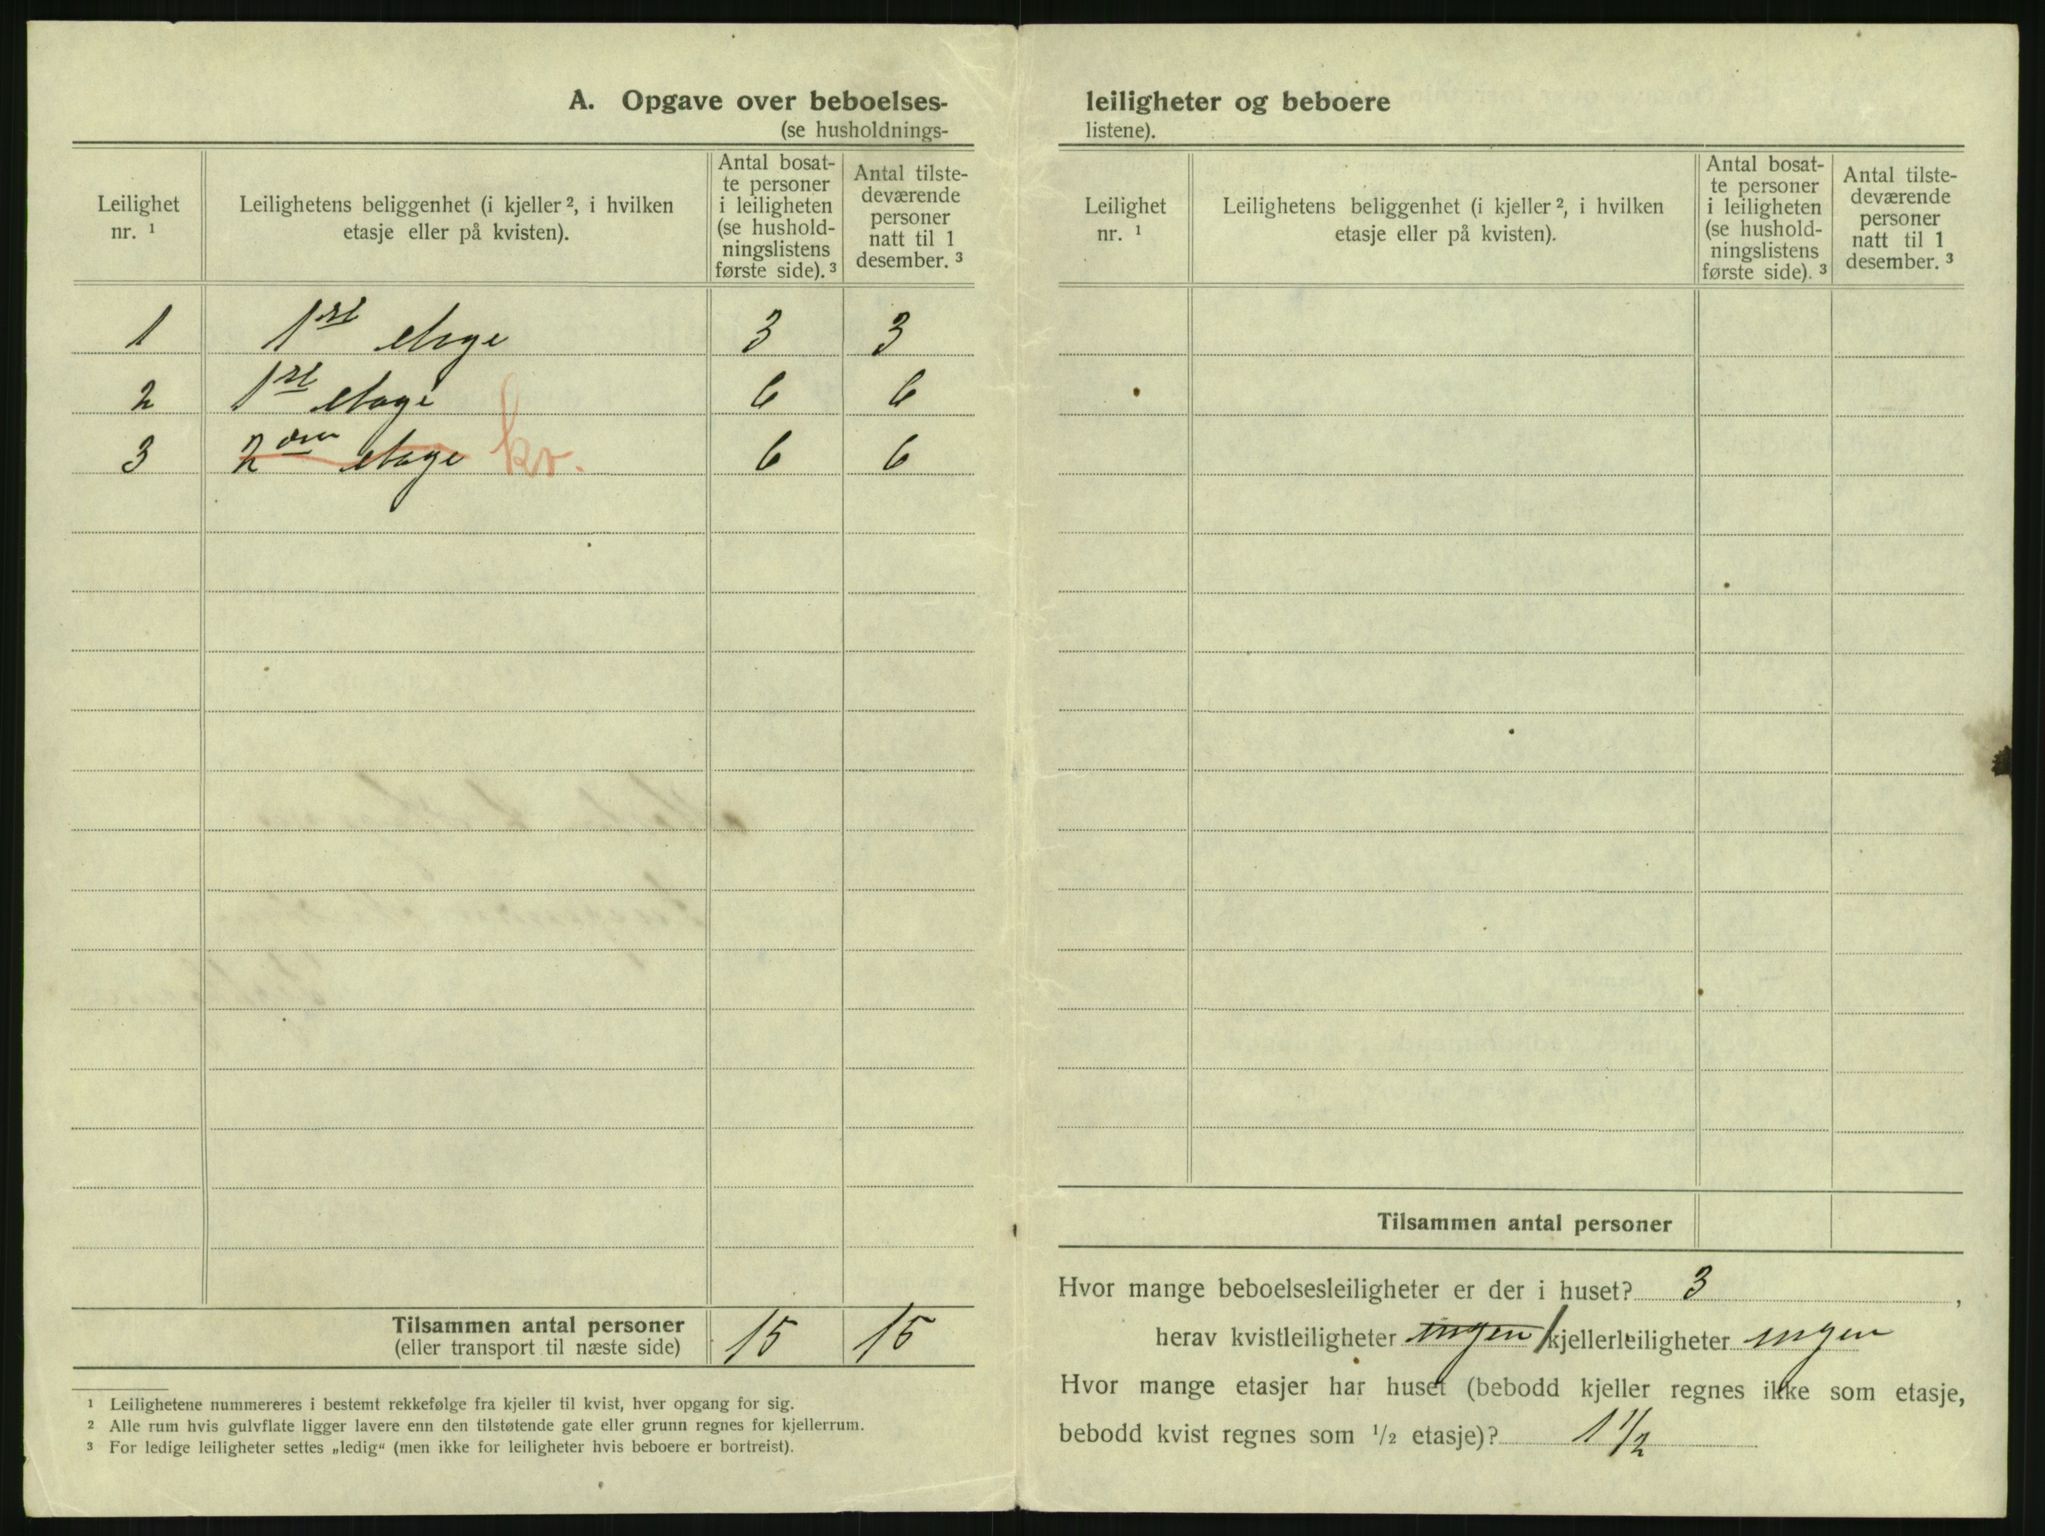 A. Opgave over beboelses-
(se husholdnings-
Leilighet nr. ¹
Leilighetens beliggenhet (i kjeller ², i hvilken etasje eller på kvisten).
Antal bosat-
te personer
i leiligheten
(se hushold-
ningslistens
første side). ³
Antal tilste-
deværende
personer
natt til 1
desember. ³
1 1ste etage 3 3
2 1ste etage 6 6
3 2den etage kv. 6 6
Tilsammen antal personer 15 15
(eller transport til næste side)
¹ Leilighetene nummereres i bestemt rekkefølge fra kjeller til kvist, hver opgang for sig.
² Alle rum hvis gulvflate ligger lavere enn den tilstøtende gate eller grunn regnes for kjellerrum.
³ For ledige leiligheter settes „ledig“ (men ikke for leiligheter hvis beboere er bortreist).
leiligheter og beboere
listene).
Leilighet nr. ¹
Leilighetens beliggenhet (i kjeller ², i hvilken etasje eller på kvisten).
Antal bosat-
te personer
i leiligheten
(se hushold-
ningslistens
første side). ³
Antal tilste-
deværende
personer
natt til 1
desember. ³
Tilsammen antal personer
Hvor mange beboelsesleiligheter er der i huset? 3 ,
herav kvistleiligheter ingen / kjellerleiligheter ingen
Hvor mange etasjer har huset (bebodd kjeller regnes ikke som etasje,
bebodd kvist regnes som ½ etasje)? 1 1/2